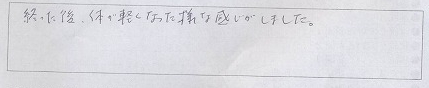 終った後、体が軽くなった様な感じがしました。